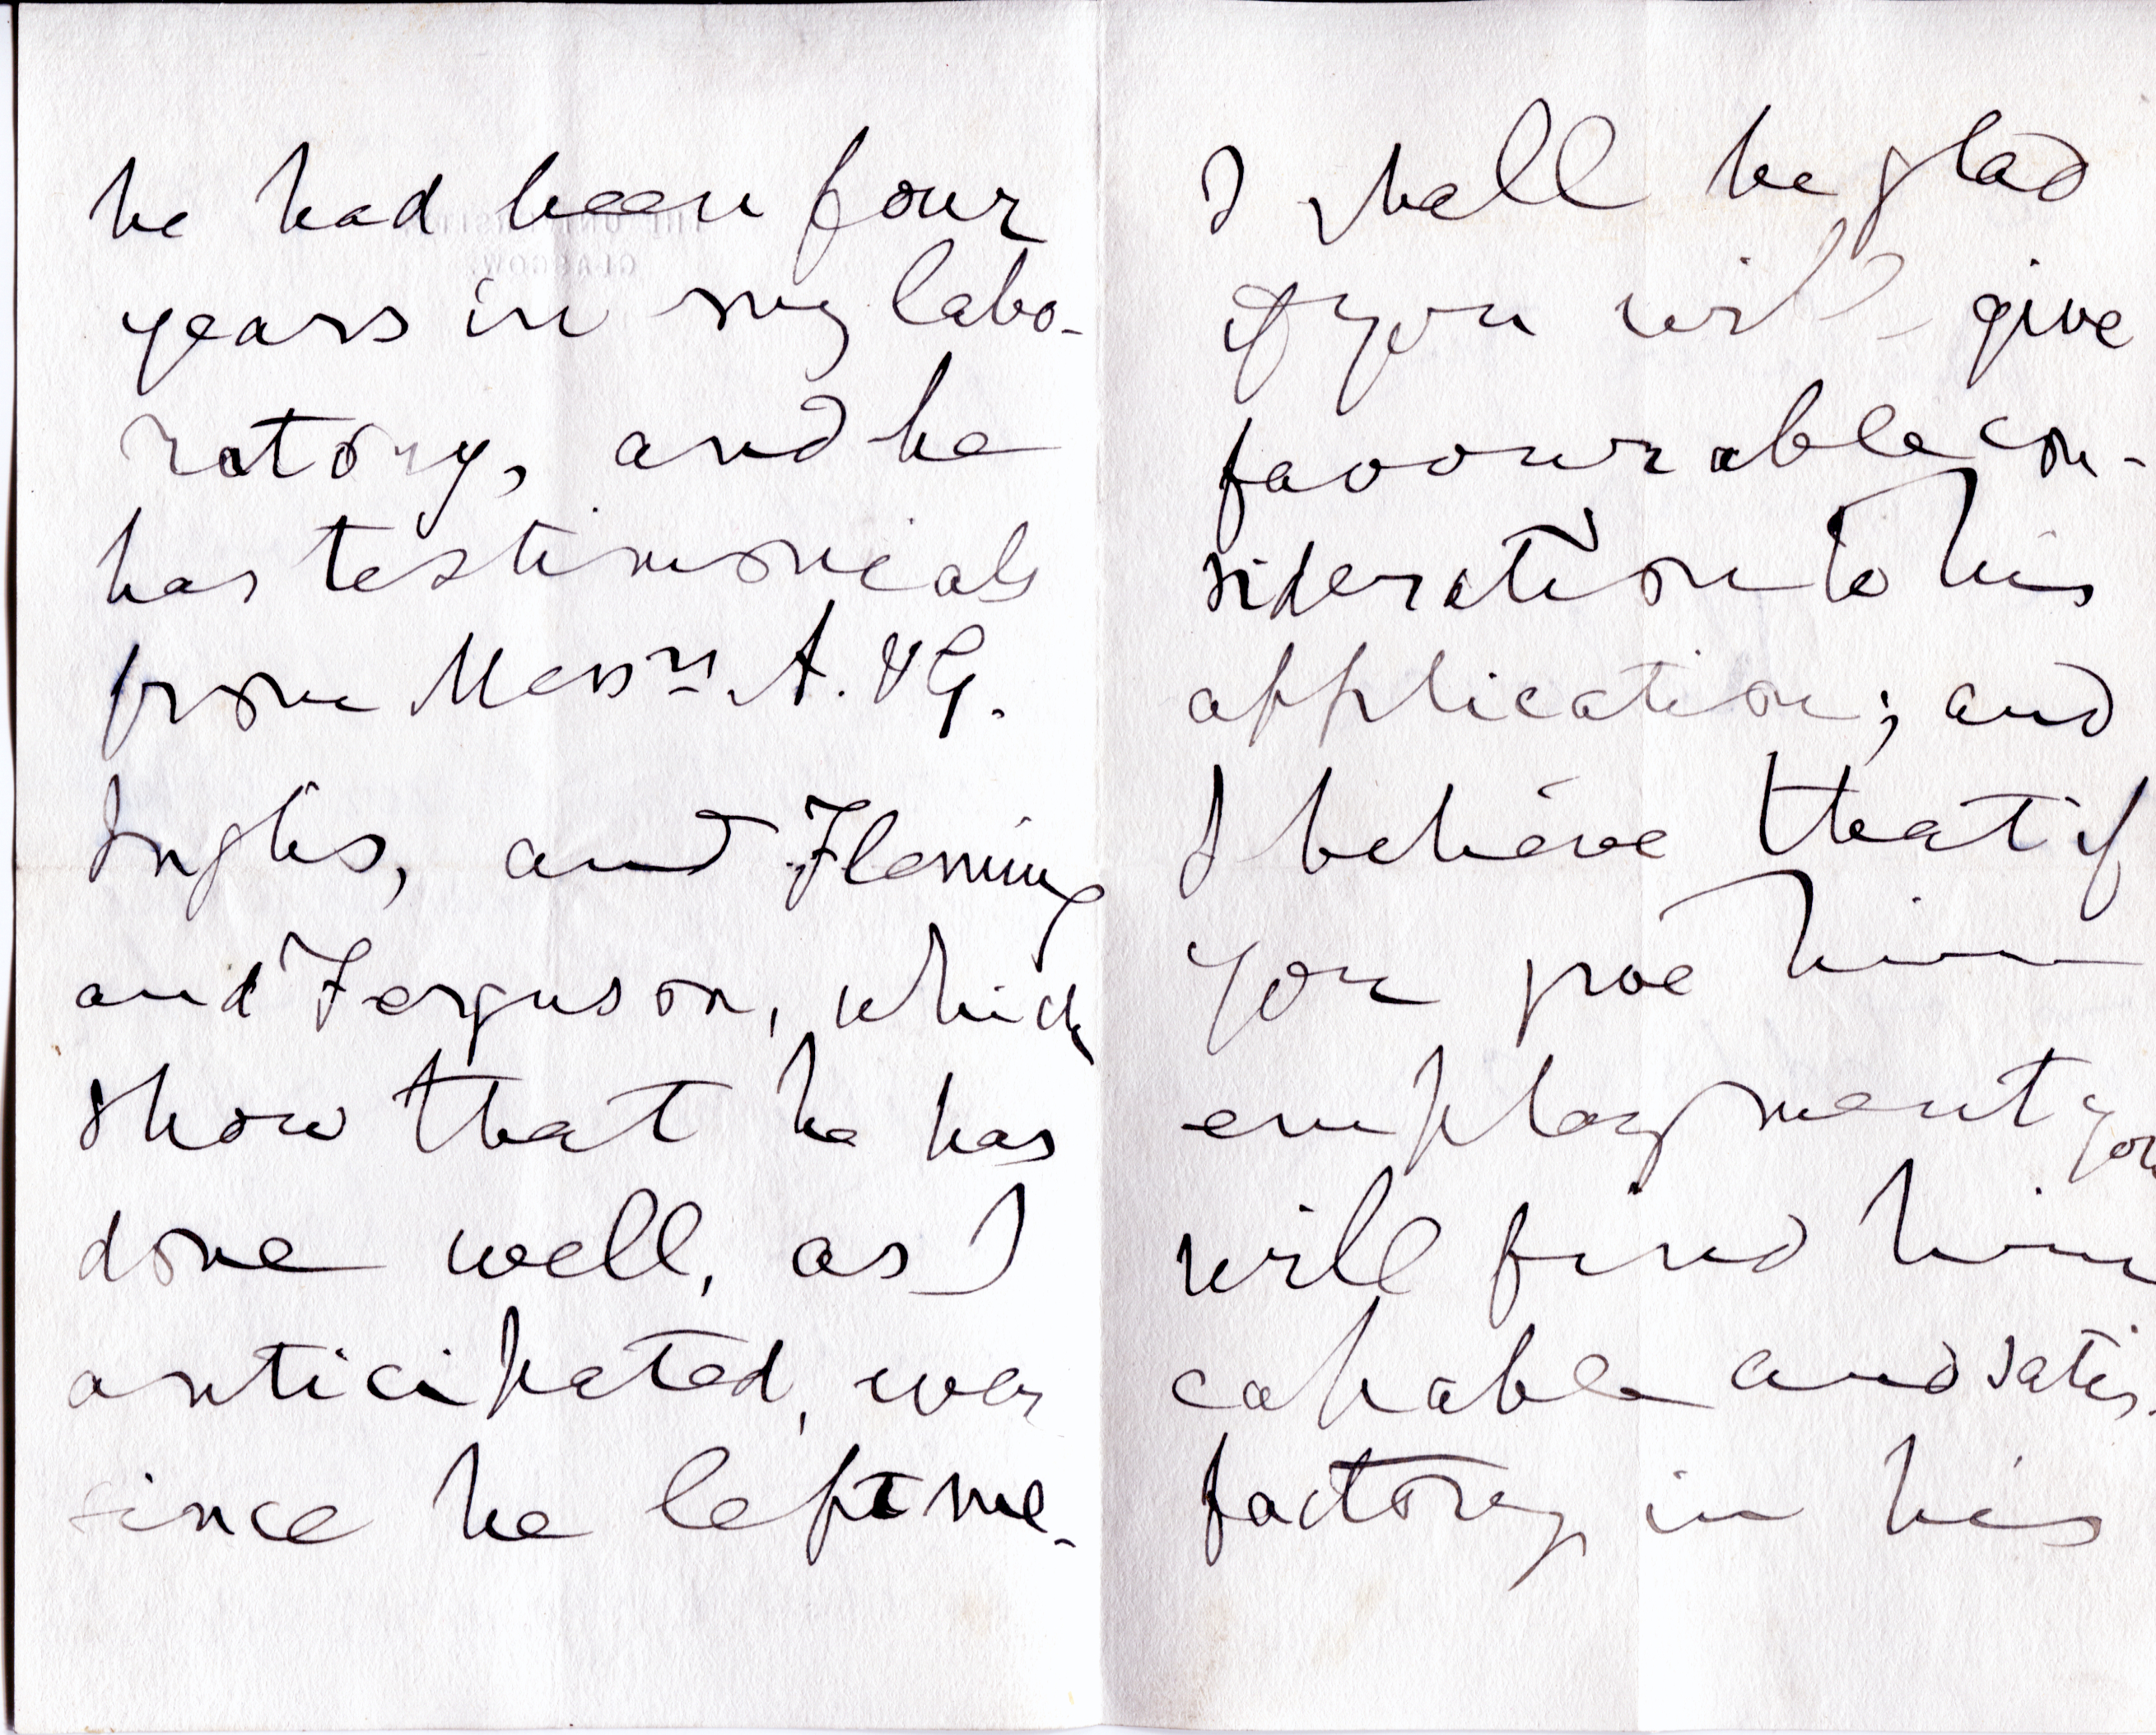 he had been four
years in my labo-
ratory, and he
has testimonials
from Messrs A. & G.
Inglis, and Fleming
and Ferguson, which
show that he has
done well, as I
anticipated, ever
since he left me.
I shall be glad
if you will give
favourable con-
sideration to his
application; and
I believe that if
you give him
employment you
will find him
capable and satis-
factory in his
THE UNIVERSITY
GLASGOW.